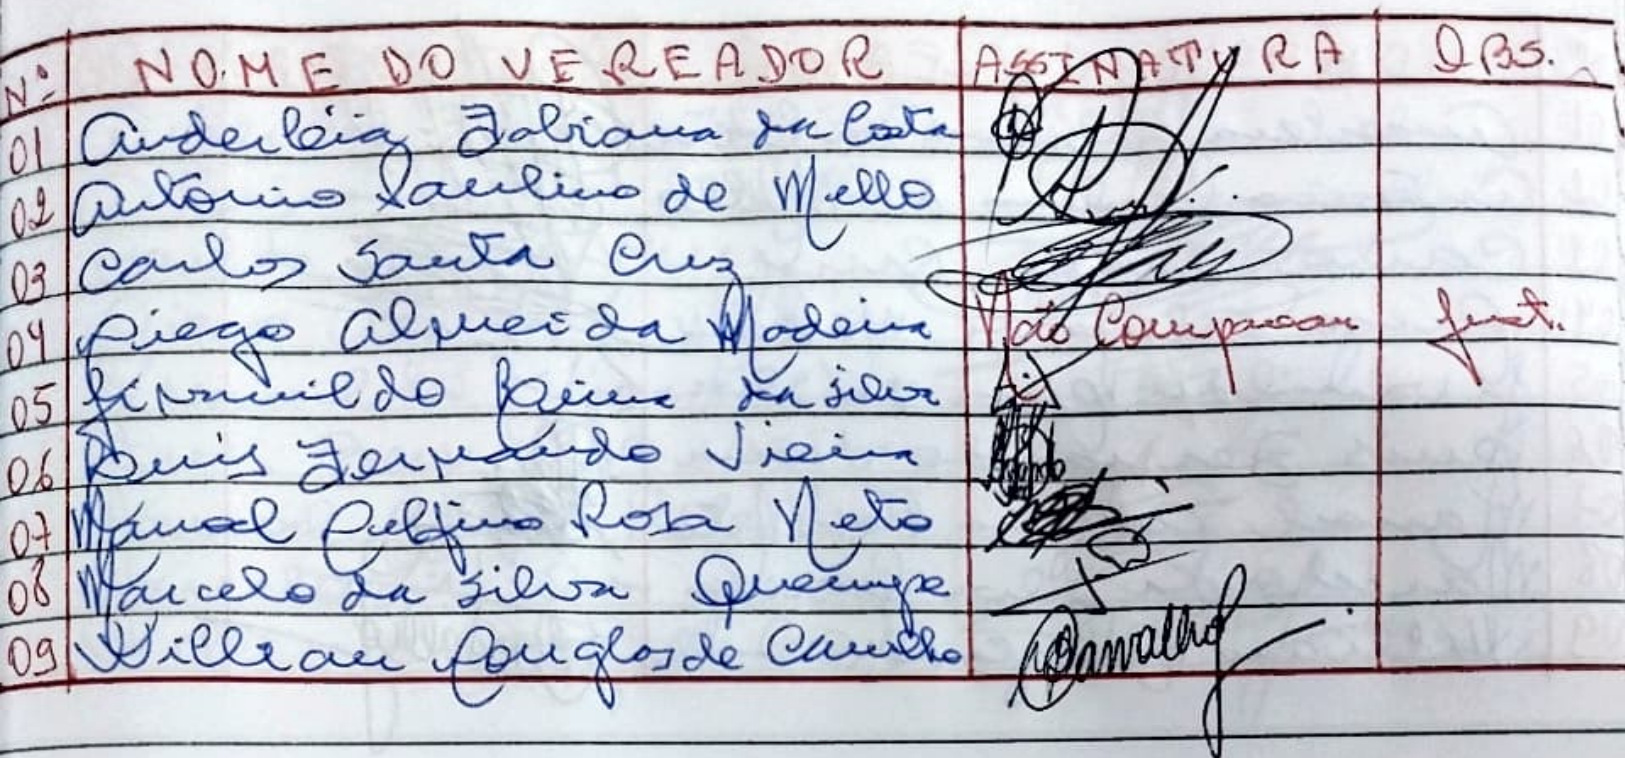 Nº NOME DO VEREADOR ASSINATURA OBS.
01 Anderléia Fabiana da Costa
02 Antônio Paulino de Mello
03 Carlos Santa Cruz
04 Diego Almeida Madeira Não Compareceu Just.
05 da Silva
06 Luis Fernando Vieira
07 Manoel Rosa Neto
08 Marcelo da Silva
09 Willian Douglas de Carvalho Carvalho